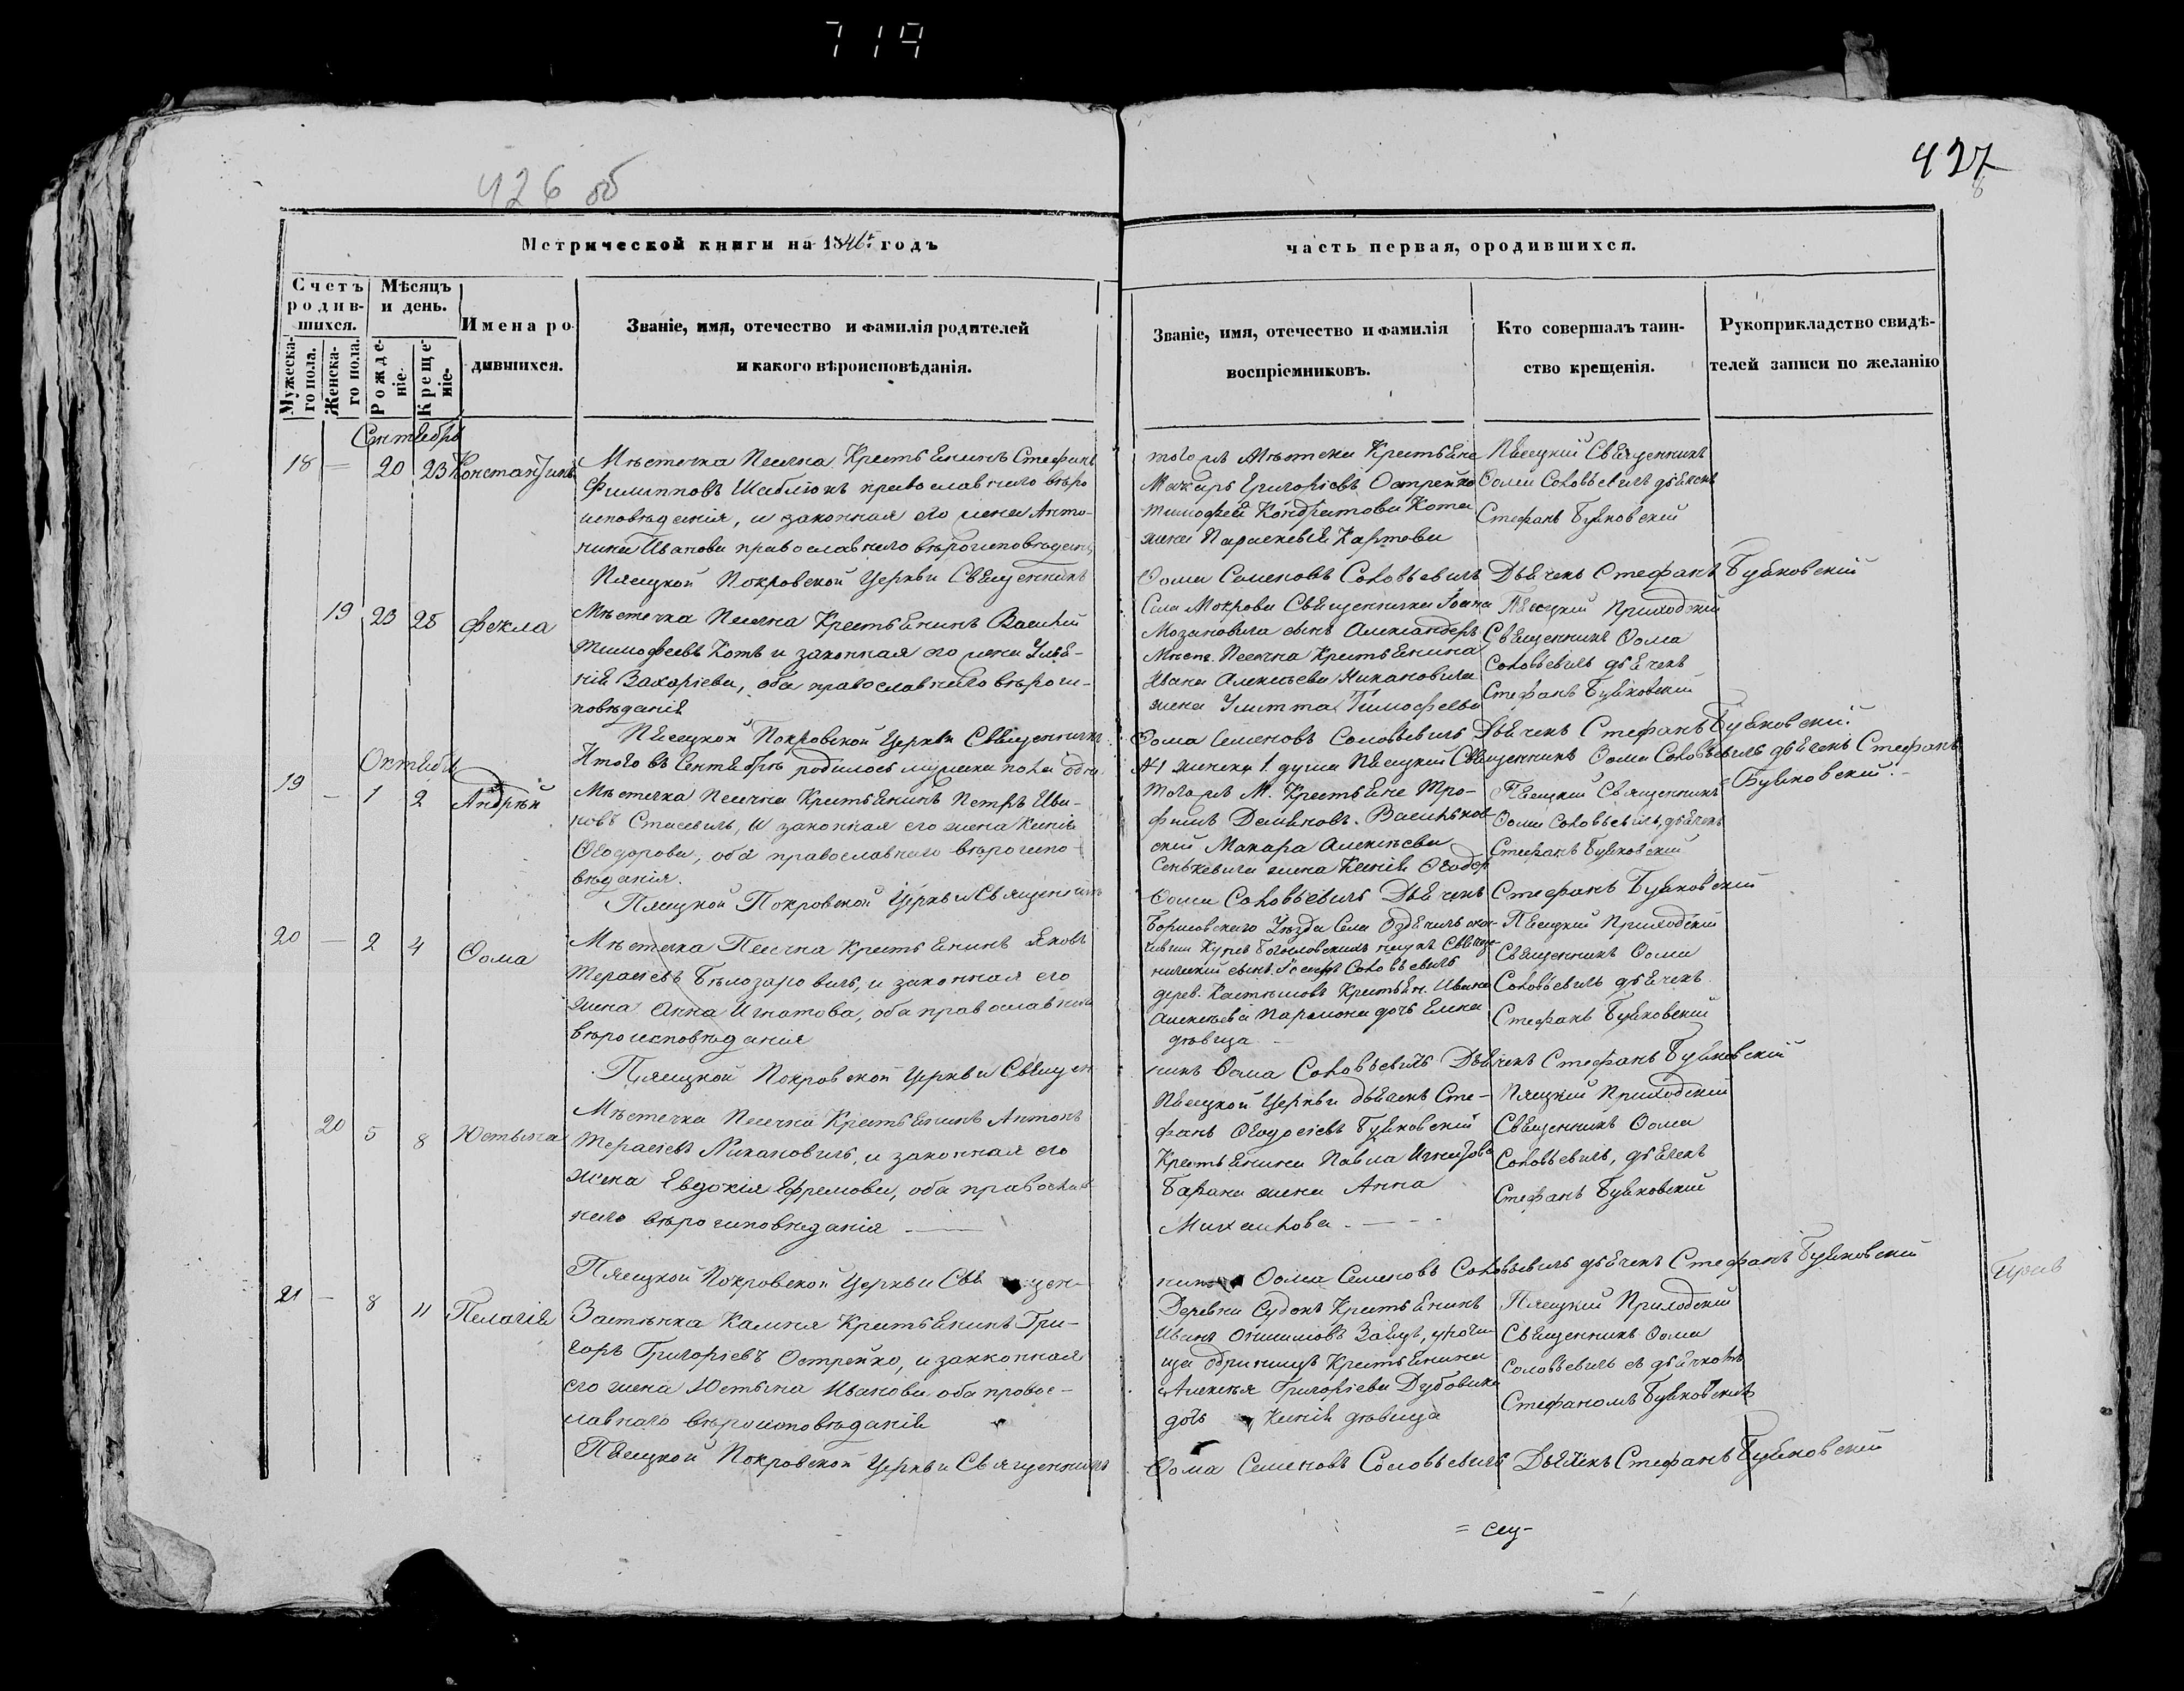 719
426 об
427
Метрической книги на 1846 годъ
часть первая, ородившихся.
Счетъ родив-шихся.
Мѣсяцъ и день.
Мужеска-го пола.
Женска-го пола.
Рожде-ніе.
Креще-ніе.
Имена ро-дившихся.
Званіе, имя, отечество и фамилія родителей
и какого вѣроисповѣданія.
Званіе, имя, отечество и фамилія
воспріемниковъ.
Кто совершалъ таин-
ство крещенія.
Рукоприкладство свидѣ-
телей записи по желанію
Сентябрь
18 — 20 23 Константинъ
Мѣстечка Песечна Крестьянинъ Стефанъ
Филипповъ Шаблюкъ православнаго вѣро
исповѣданія, и законная его жена Анто-
нина Иванова православнаго вѣроисповѣданія
того жъ Мѣстечка Крестьяне
Макаръ Григорьевъ Острейко
Тимофея Кондратова Кота
жена Параскевія Карпова
Пѣсецкій Священникъ
Ѳома Соловьевичъ дьячекъ
Стефанъ Буяковскій
Пясецкой Покровской Церкви Священникъ Ѳома Семеновъ Соловьевичъ Дьячекъ Стефанъ Буяковскій
19 23 28 Фекла
Мѣстечка Песечна Крестьянинъ Василій
Тимофеевъ Котъ и законная его жена Улья-
нія Захаріева, оба православнаго вѣроис-
повѣданія
Села Мокрова Священника Іоанна
сынъ Александеръ
Мѣст. Песечна Крестьянина
Ивана Алексѣева Никановича
жена Улитта Тимофеева
Пясецкій Приходскій
Священникъ Ѳома
Соловьевичъ дьячекъ
Стефанъ Буяковскій
Пясецкой Покровской Церкви Священникъ Ѳома Семеновъ Соловьевичъ Дьячекъ Стефанъ Буяковскій.
Итого въ Сентябрѣ родилось мужеска пола одна №1 женска 1 душа Пясецкій Священникъ Ѳома Соловьевичъ дьячекъ Стефанъ
Буяковскій.
Октябрь
19 — 1 2 Андрѣй
Мѣстечка Песечна Крестьянинъ Петръ Ива-
новъ Стасевичъ, и законная его жена Ксенія
Ѳеодорова, оба православнаго вѣроиспо-
вѣданія.
Того жъ М. Крестьяне Тро-
фимъ Демьяновъ Васильков-
скій Макара Алексѣева
Сенькевича жена Ксенія Ѳеодор
Пясецкій Священникъ
Ѳома Соловьевичъ, дьячекъ
Стефанъ Буяковскій
Пясецкой Покровской Церкви Священникъ Ѳома Соловьевичъ Дьячекъ Стефанъ Буяковскій
20 — 2 4 Ѳома
Мѣстечка Песечна Крестьянинъ Яковъ
Герасіевъ Бѣлозаровичъ, и законная его
жена Анна Игнатова, оба православнаго
вѣроисповѣданія
Борисовскаго Уѣзда Села
Курсъ Богословскихъ наукъ Священ-
нический сынъ Іосифъ Соловьевичъ
дерев. Крестьян. Ивана
Алексѣева Парамона дочь Елена
дѣвица
Пясецкій Приходскій
Священникъ Ѳома
Соловьевичъ дьячекъ
Стефанъ Буяковскій
Пясецкой Покровской Церкви Священникъ Ѳома Соловьевичъ Дьячекъ Стефанъ Буяковскій
20 5 8 Юстына
Мѣстечка Песечна Крестьянинъ Антонъ
Герасіевъ Никановичъ, и законная его
жена Евдокія Ефремова, оба православ-
наго вѣроисповѣданія
Пясецкой Церкви дьячекъ Сте-
фанъ Ѳеодосіевъ Буяковскій
Крестьянина Павла Игнатова
Барана жена Анна
Михайлова.
Пясецкій Приходскій
Священникъ Ѳома
Соловьевичъ, дьячекъ
Стефанъ Буяковскій
Пясецкой Покровской Церкви Священникъ Ѳома Семеновъ Соловьевичъ дьячекъ Стефанъ Буяковскій
21 — 8 11 Пелагія
Застѣнка Камня Крестьянинъ Гри-
горъ Григоріевъ Острейко, и закконная
его жена Юстына Иванова оба право-
славнаго вѣроисповѣданія
Деревни Крестьянинъ
Иванъ Онисимовъ Заяцъ, урочи-
ща Крестьянина
Алексѣя Григоріева Дубовика
дочь Ксенія дѣвица
Пясецкій Приходскій
Священникъ Ѳома
Соловьевичъ съ дьячкомъ
Стефаномъ Буяковскимъ
Пясецкой Покровской Церкви Священникъ Ѳома Семеновъ Соловьевичъ Дьячекъ Стефанъ Буяковскій